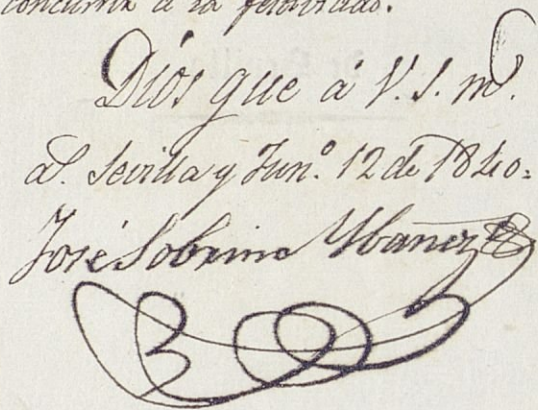 concurrir á la festividad.
Dios gue á V. S. ms.
as. Sevilla y Jun.º 12 de 1840=
José Sobrino Ybañez